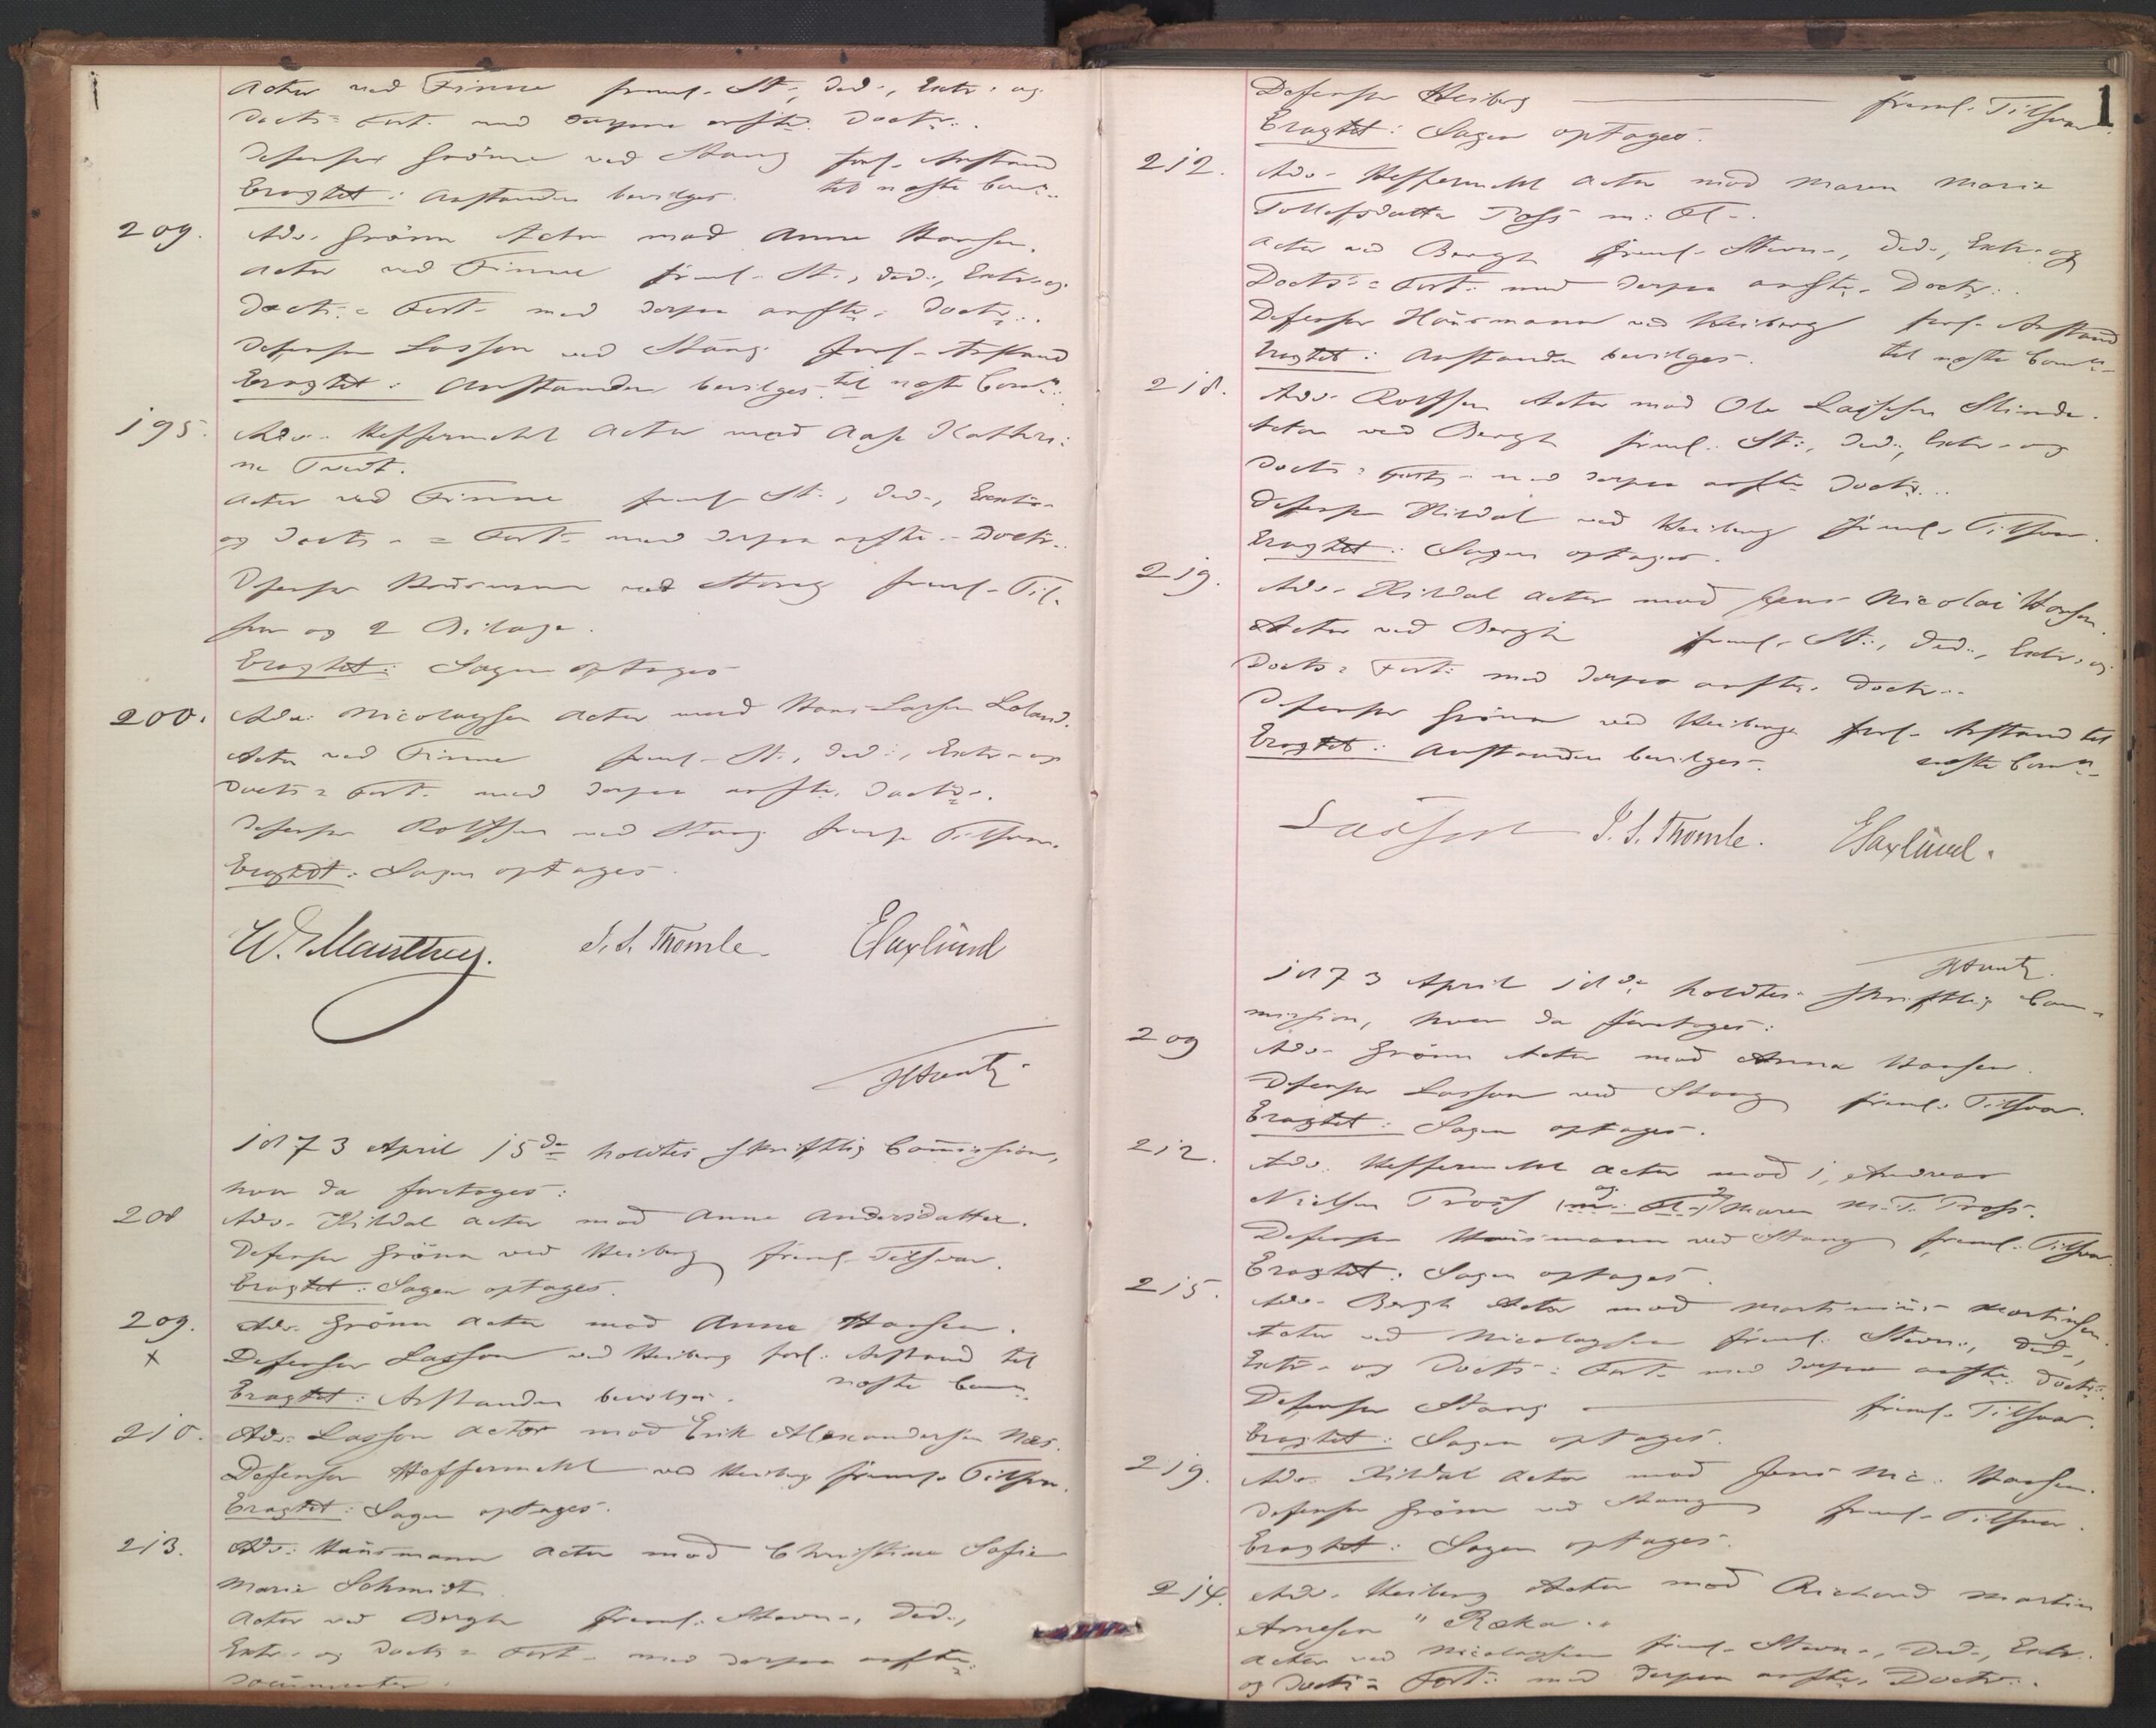 Actor ved Finne freml. St., Ded., Extr. og
Docts= Fort. med derpaa anførte Doctr.
Defensor Grönn ved Stang forl. Anstand
Eragtet: Anstanden bevilges. til næste Comn.
209. Adv. Grönn Actor mod Anne Hansen.
Actor ved Finne freml. St., Ded., Extr. og
Docts.= Fort. med derpaa anførte Doctr.
Defensor Lasson ved Stang forl. Anstand
Eragtet: Anstanden bevilges til næste Comn.
195. Adv. Heffermehl Actor mod Aase Kathri=
ne Tvedt.
Actor ved Finne freml. St., Ded., Extr.
og Docts.= Fort. med derpaa anførte Doctr.
Defensor Hansmann ved Stang freml. Til-
svar og 2 Bilage.
Eragtet: Sagen optages
200. Adv. Nicolaysen Actor mod Hans Larsen Loland.
Actor ved Finne freml. St., Ded., Extr. og
Docts= Fort. med derpaa anførte Doctr.
Defensor Rolfsen ved Stang freml. Tilsvar.
Eragtet: Sagen optages.
W. Manthey. J. S. Thomle. E Saxlund
1873 April 15de holdtes skriftlig Commission,
hvor da foretoges:
208 Adv. Kildal Actor mod Anne Andersdatter.
Defensor Grönn ved Heiberg freml. Tilsvar.
Eragtet: Sagen optages.
209. Adv. Grönn Actor mod Anne Hansen.
x Defensor Lasson ved Heiberg forl. Anstand til
Eragtet: Anstanden bevilges. næste Comn.
210. Adv. Lasson Actor mod Erik Alexandersen Næs.
Defensor Heffermehl ved Heiberg freml. Tilsvar.
Eragtet: Sagen optages.
213. Adv. Hansmann Actor mod Christine Sofie
Marie Schmidt.
Actor ved Bergh freml. Stevn., Ded.,
Extr. og Docts= Fort. med derpaa anførte
Documenter.
1
Defensor Heiberg freml. Tilsvar.
Eragtet: Sagen optages.
212. Adv. Heffermehl Actor mod Maren Marie
Tollefsdatter m: Fl.
Actor ved Bergh freml. Stevn., Ded., Extr. og
Docts.= Fort. med derpaa anførte Doctr.
Defensor Hansmann ved Heiberg forl. Anstand
Eragtet: Anstanden bevilges. til næste Comn.
218. Adv. Rolfsen Actor mod Ole Larsen Slinde.
Actor ved Bergh freml. St., Ded., Extr. og
Docts= Fort. med derpaa anførte Doctr.
Defensor Kildal ved Heiberg freml. Tilsvar.
Eragtet: Sagen optages.
219. Adv. Kildal Actor mod Jens Nicolai Hansen.
Actor ved Bergh freml. St., Ded., Extr. og
Docts= Fort. med derpaa anførte Doctr.
Defensor Grönn ved Heiberg forl. Anstand til
Eragtet: Anstanden bevilges. næste Comn.
J. S. Thomle. E Saxlund.
1873 April 18de holdtes skriftlig Com-
mission, hvor da foretoges:
209 Adv. Grönn Actor mod Anna Hansen.
Defensor Lasson ved Stang freml. Tilsvar.
Eragtet: Sagen optages.
212. Adv. Heffermehl Actor mod 1, Andreas
Nielsen og 2, Maren M. T.
Defensor Hansmann ved Stang freml. Tilsvar.
Eragtet: Sagen optages.
215. Adv. Bergh Actor mod Martinius Martinsen.
Actor ved Nicolaysen freml. Stevn., Ded.,
Extr. og Docts= Fort. med derpaa anførte Doctr.
Defensor Stang freml. Tilsvar.
Eragtet: Sagen optages.
219. Adv. Kildal Actor mod Jens Nic. Hansen.
Defensor Grönn ved Stang freml. Tilsvar.
Eragtet: Sagen optages.
214. Adv. Heiberg Actor mod Richard Martin
Arnesen "Ræka".
Actor ved Nicolaysen freml. Stevn., Ded., Extr.
og Docts= Fort. med derpaa anførte Doctr.